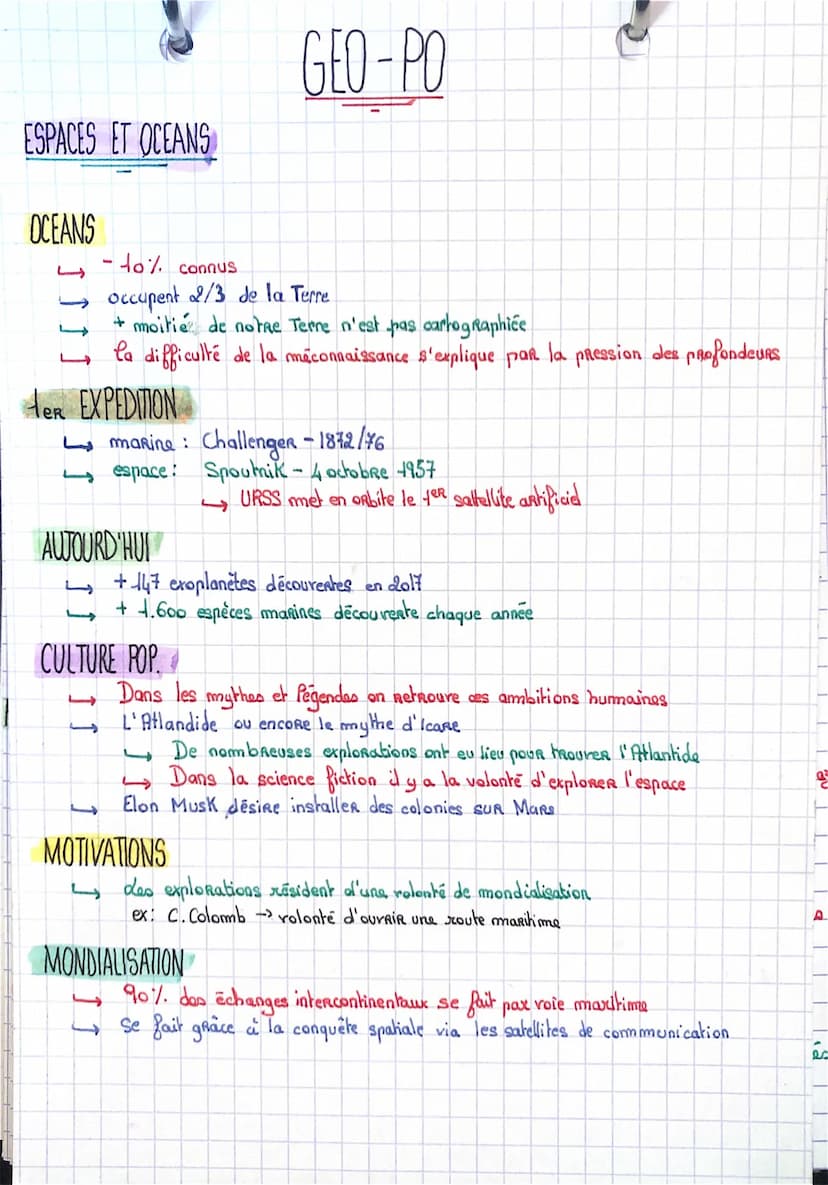 GEO-PO
ESPACES ET OCEANS
OCEANS
↳ -10% connus
↳ occupent 2/3 de la Terre
↳ + moitié de notre Terre n'est pas cartographiée
↳ la difficulté de la méconnaissance s'explique par la pression des profondeurs
1er EXPEDITION
↳ marine : Challenger - 1872/76
↳ espace : Spoutnik - 4 octobre 1957
↳ URSS met en orbite le 1er sattellite artificiel
AUJOURD'HUI
↳ + 147 exoplanètes découvertes en 2017
↳ + 1.600 espèces marines découverte chaque année
CULTURE POP.
↳ Dans les mythes et légendes on retrouve ces ambitions humaines
↳ L'Atlandide ou encore le mythe d'Icare
↳ De nombreuses explorations ont eu lieu pour trouver l'Atlantide
↳ Dans la science fiction il y a la volonté d'explorer l'espace
↳ Elon Musk désire installer des colonies sur Mars
MOTIVATIONS
↳ des explorations résident d'une volonté de mondialisation
ex: C. Colomb → volonté d'ouvrir une route maritime
MONDIALISATION
↳ 90% des échanges intercontinentaux se fait par voie maritime
↳ se fait grâce à la conquête spatiale via les satellites de communication